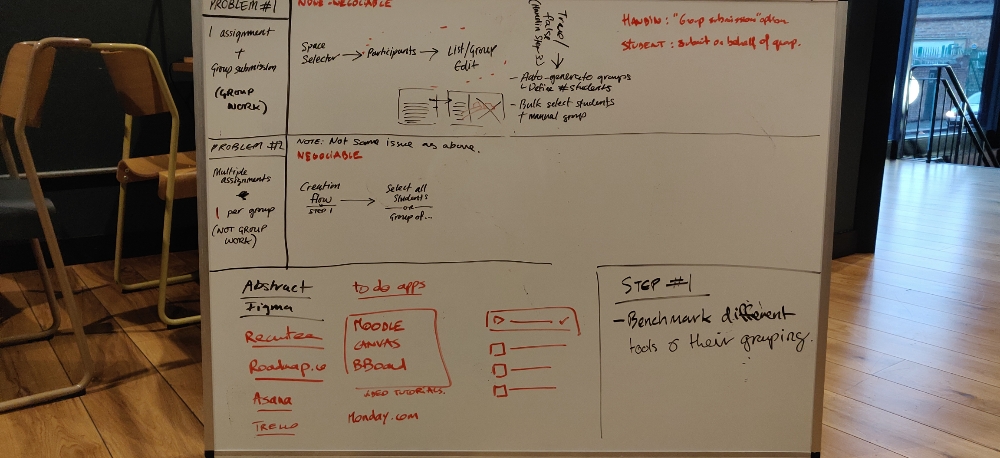 PROBLEM #1
1 assignment
+
Group submission
(GROUP WORK)
NONE-NEGOCIABLE
Space Selector → Participants → List/Group Edit
True/
false
→
- Auto-generate groups
↳ Define # students
- Bulk select students
+ manual group
HANDIN: "Group submission" option
STUDENT: Submit on behalf of group.
PROBLEM #2
Multiple
assignments
+
1 per group
(NOT GROUP
WORK)
NOTE: Not same issue as above.
NEGOCIABLE
Creation flow → Select all students
STEP 1
OR
Group of...
Abstract
Figma
Recruitee
Roadmap.io
Asana
TRELLO
to do apps
MOODLE
CANVAS
BBoard
VIDEO TUTORIALS.
Monday.com
STEP #1
- Benchmark different
tools & their grouping.